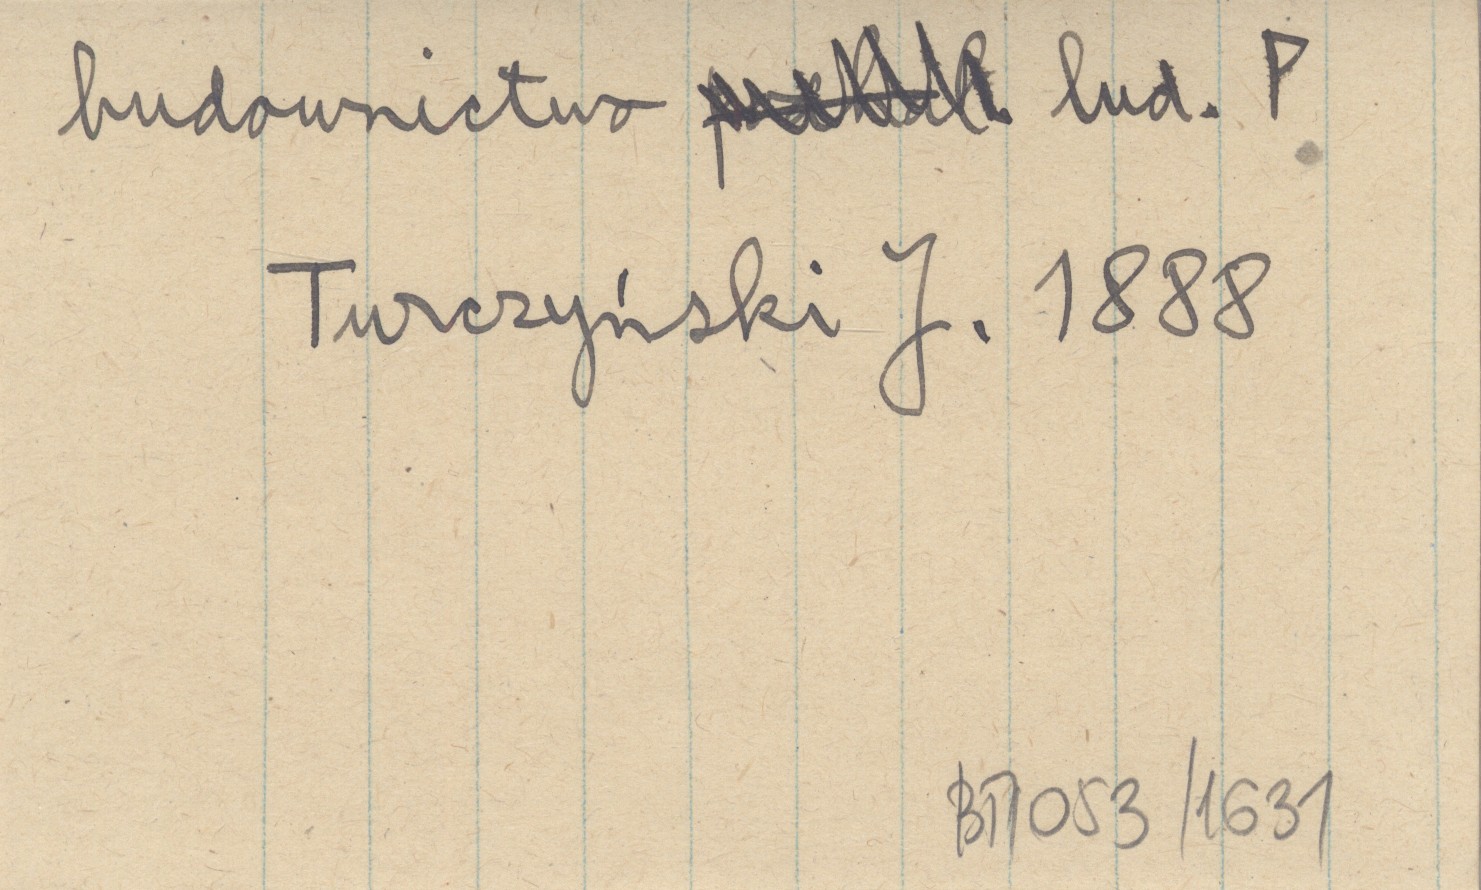 budownictwo lud. P
Turczyński J. 1888
053/1631